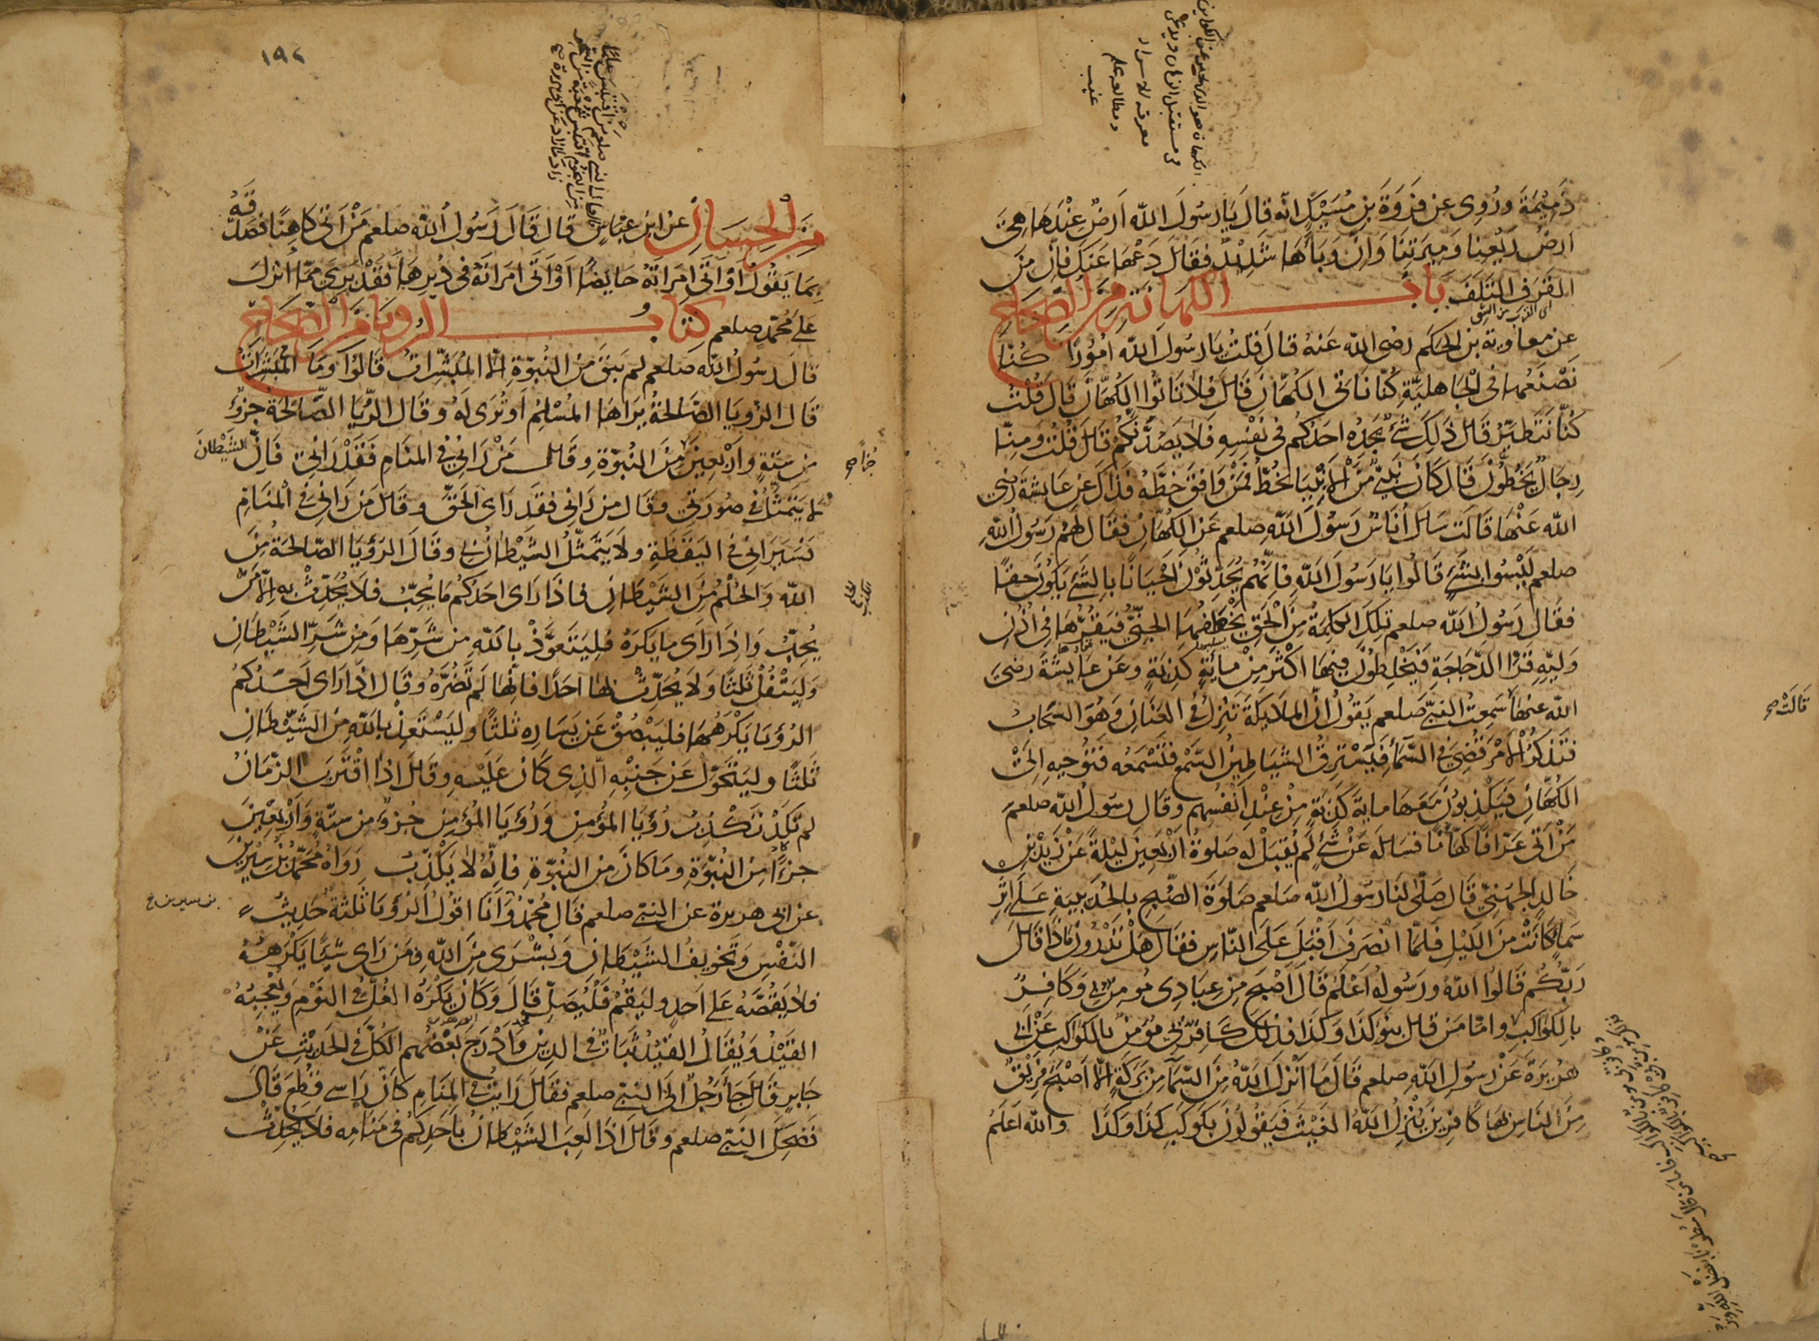 ذميمة وروي عن فروة بن مسيك انه قال يا رسول الله ارض عندها هي
ارض ريعنا وميرتنا وان وباءها شديد فقال دعها عنك فان من
القرف التلف باب الكهانة من الصحاح
عن معاوية بن الحكم رضى الله عنه قال قلت يا رسول الله امورا كنا
نصنعها في الجاهلية كنا ناتي الكهان قال فلا تاتوا الكهان قال قلت
كنا نتطير قال ذلك شئ يجده احدكم في نفسه فلا يصدنكم قال قلت ومنا
رجال يخطون قال كان نبي من الانبياء يخط فمن وافق خطه فذاك عن عايشة رضي
الله عنها قالت سال اناس رسول الله صلعم عن الكهان فقال لهم رسول الله
صلعم ليسوا بشئ قالوا يا رسول الله فانهم يحدثون احيانا بالشئ يكون حقا
فقال رسول الله صلعم تلك الكلمة من الحق يخطفها الجني فيقرها في اذن
وليه قر الدجاجة فيخلطون فيها اكثر من ماية كذبة وعن عايشة رضي
الله عنها سمعت النبي صلعم يقول ان الملايكة تنزل في العنان وهو السحاب
فتذكر الامر قضي في السماء فيسترق الشياطين السمع فتسمعه فتوحيه الى
الكهان فيكذبون معها ماية كذبة من عند انفسهم وقال رسول الله صلعم
من اتى عرافا كاهنا فساله عن شئ لم يقبل له صلوة اربعين ليلة عن زيد بن
خالد الجهني قال صلى لنا رسول الله صلعم صلوة الصبح بالحديبية على اثر
سماء كانت من الليل فلما انصرف اقبل على الناس فقال هل تدرون ماذا قال
ربكم قالوا الله ورسوله اعلم قال اصبح من عبادي مومن بي وكافر
بالكواكب واما من قال بنو كذا وكذا فذلك كافر بي مومن بالكواكب عن ابي
هريرة عن رسول الله صلعم قال ما انزل الله من السماء من بركة الا اصبح فريق
من الناس بها كافرين ينزل الله الغيث فيقولون بكوكب كذا وكذا والله اعلم
قالت صح
١٩٢
من الحسان عن ابن عباس قال قال رسول الله صلعم من اتى كاهنا فصدقه
بما يقول او اتى امراته حايضا او اتى امراته في دبرها فقد بري مما انزل
على محمد صلعم كتاب الرويا من الصحاح
قال رسول الله صلعم لم يبق من النبوة الا المبشرات قالوا وما المبشرات
قال الرويا الصالحة يراها المسلم او ترى له وقال الرؤيا الصالحة جزؤ
من ستة واربعين من النبوة وقال من راني في المنام فقد راني فان الشيطان
لا يتمثل في صورتي وقال من راني فقد راى الحق وقال من راني في المنام
فسيراني في اليقظة ولا يتمثل الشيطان بي وقال الرؤيا الصالحة من
الله والحلم من الشيطان فاذا راى احدكم ما يحب فلا يحدث به الا من
يحب واذا راى ما يكره فليتعوذ بالله من شرها ومن شر الشيطان
وليتفل ثلثا ولا يحدث بها احدا فانها لم تضره وقال اذا راى احدكم
الرؤيا يكرهها فليبصق عن يساره ثلثا وليستعذ بالله من الشيطان
ثلثا وليتحول عن جنبه الذي كان عليه وقال اذا اقترب الزمان
لم تكد تكذب رؤيا المؤمن ورؤيا المؤمن جزؤ من ستة واربعين
جزءا من النبوة وما كان من النبوة فانه لا يكذب رواه محمد بن سيرين
عن ابي هريرة عن النبي صلعم قال محمد وانا اقول الرؤيا ثلثة حديث
النفس وتخويف الشيطان وبشرى من الله ومن راى شيئا يكرهه
فلا يقصه على احد وليقم فليصل قال وكان يكره الغل في النوم ويعجبه
القيد ويقال القيد ثبات في الدين وادرج بعضهم الكل في الحديث عن
جابر قال جاء رجل الى النبي صلعم فقال رايت في المنام كان راسي قطع قال
فضحك النبي صلعم وقال اذا لعب الشيطان باحدكم في منامه فلا يحدث